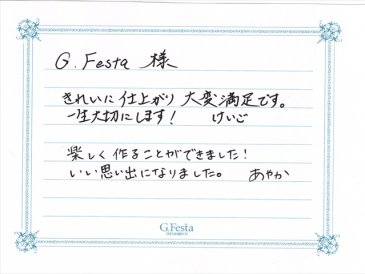 G. Festa 様
きれいに仕上がり大変満足です。
一生大切にします！ けいご
楽しく作ることができました！
いい思い出になりました。 あやか
G.Festa